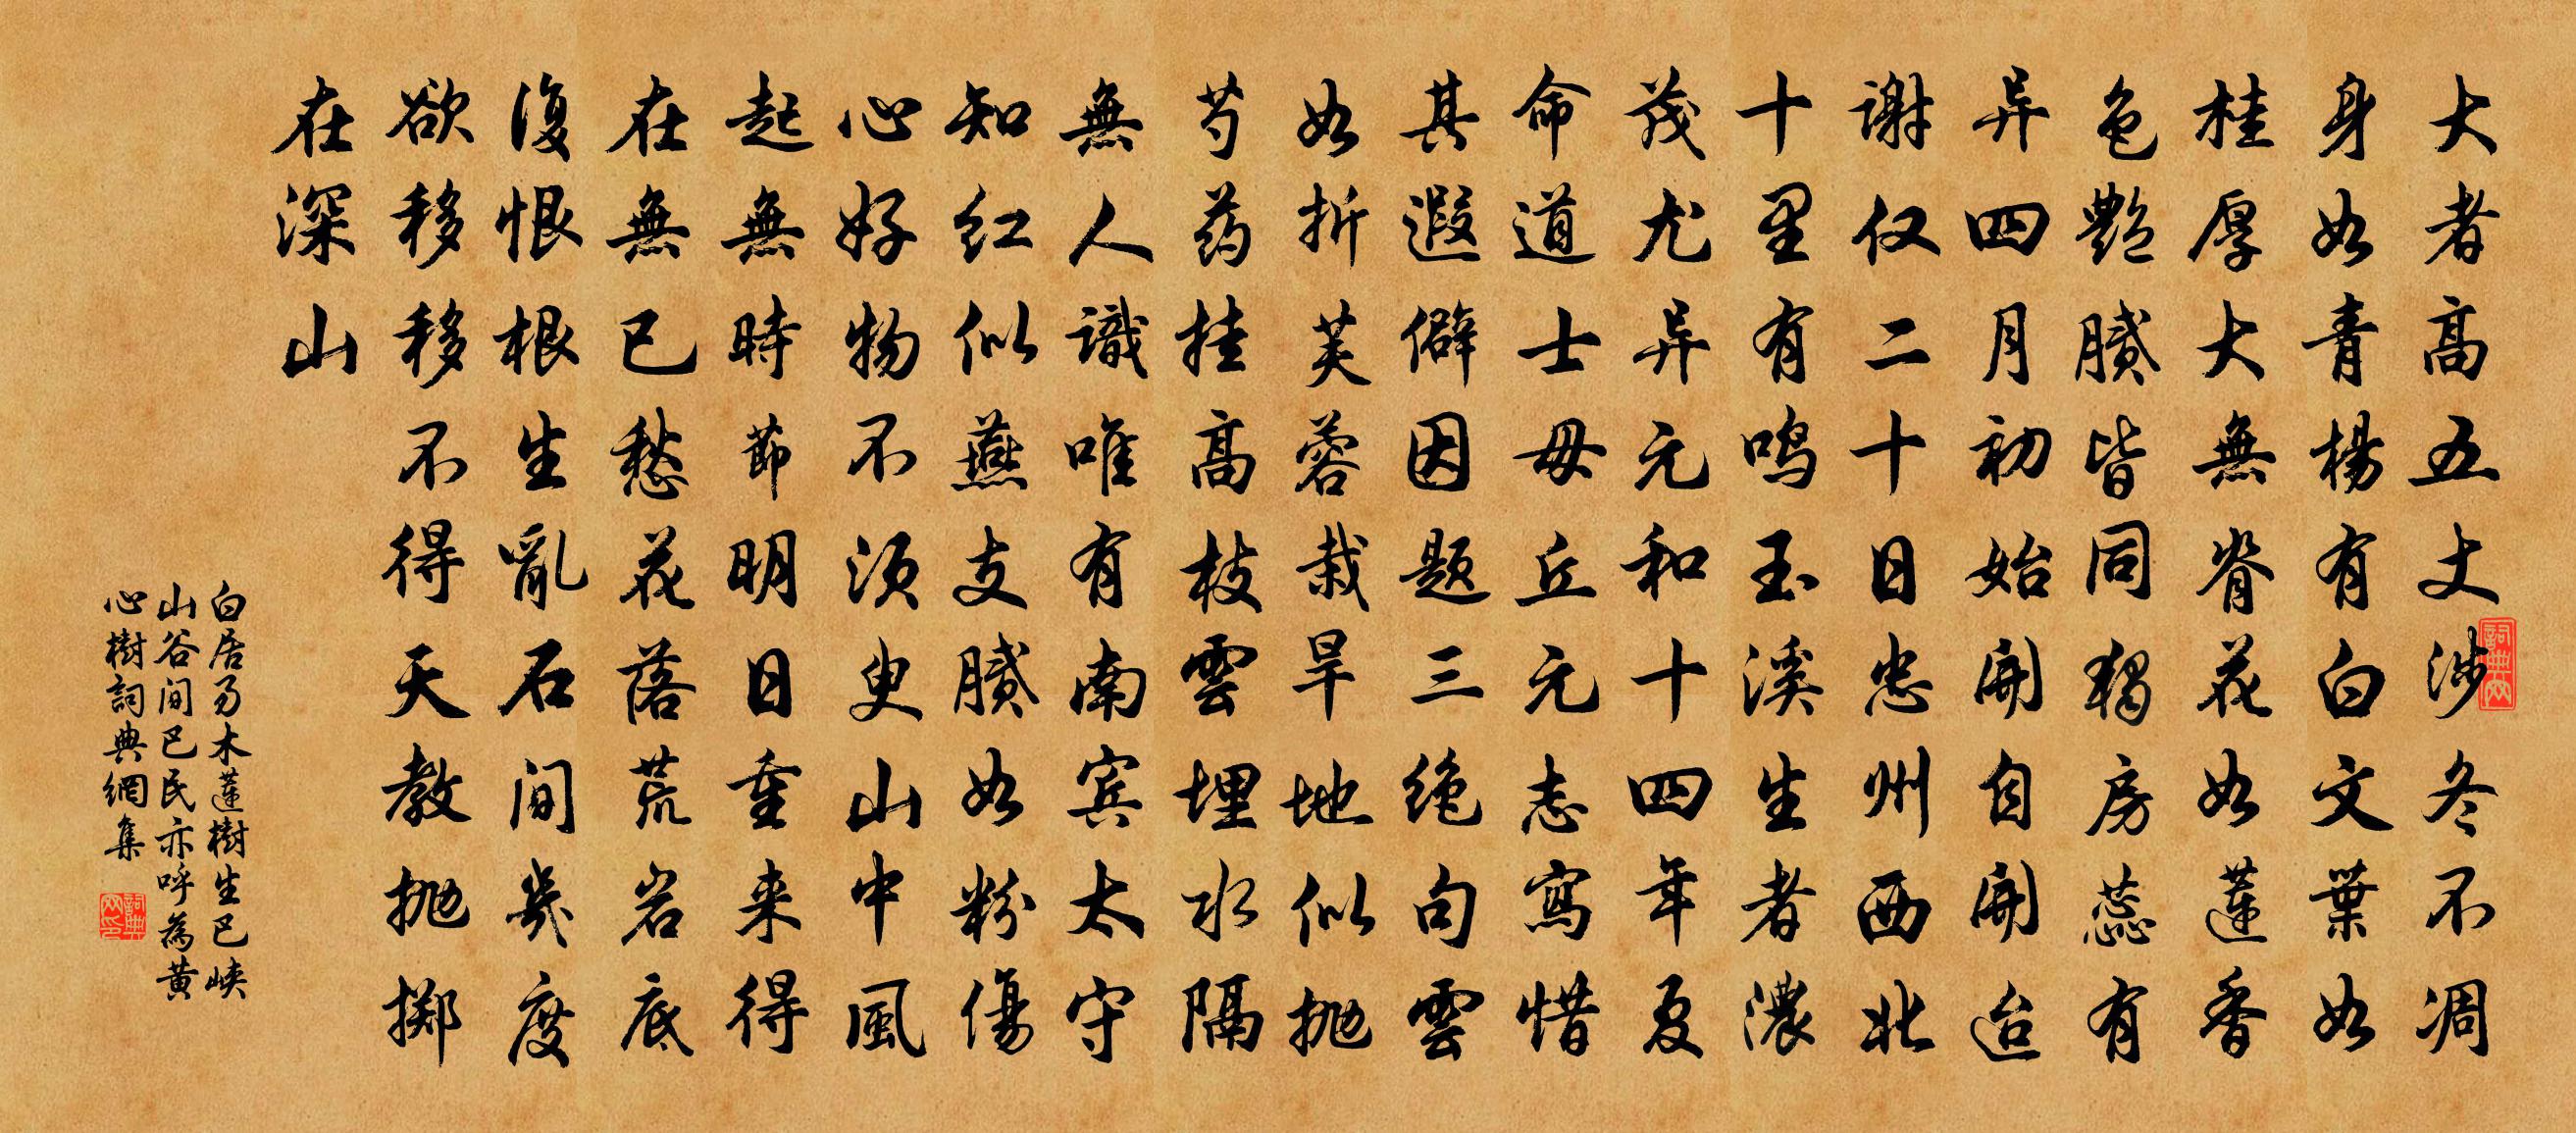 大者高五丈涉冬不凋
身如青楊有白文葉如
桂厚大無脊花如蓮香
色艷膩皆同獨房蕊有
异四月初始開自開迨
謝仅二十日忠州西北
十里有鸣玉溪生者濃
茂尤异元和十四年夏
命道士毋丘元志寫惜
其遐僻因题三绝句雲
如折芙蓉栽旱地似抛
芍药挂高枝雲埋水隔
無人識唯有南宾太守
知红似燕支膩如粉傷
心好物不须臾山中風
起無時節明日重来得
在無已愁花落荒岩底
復恨根生亂石间幾度
欲移移不得天教抛掷
在深山
白居易木蓮樹生巴峡
山谷间巴民亦呼為黄
心樹詞典網集
詞典网
詞典网印